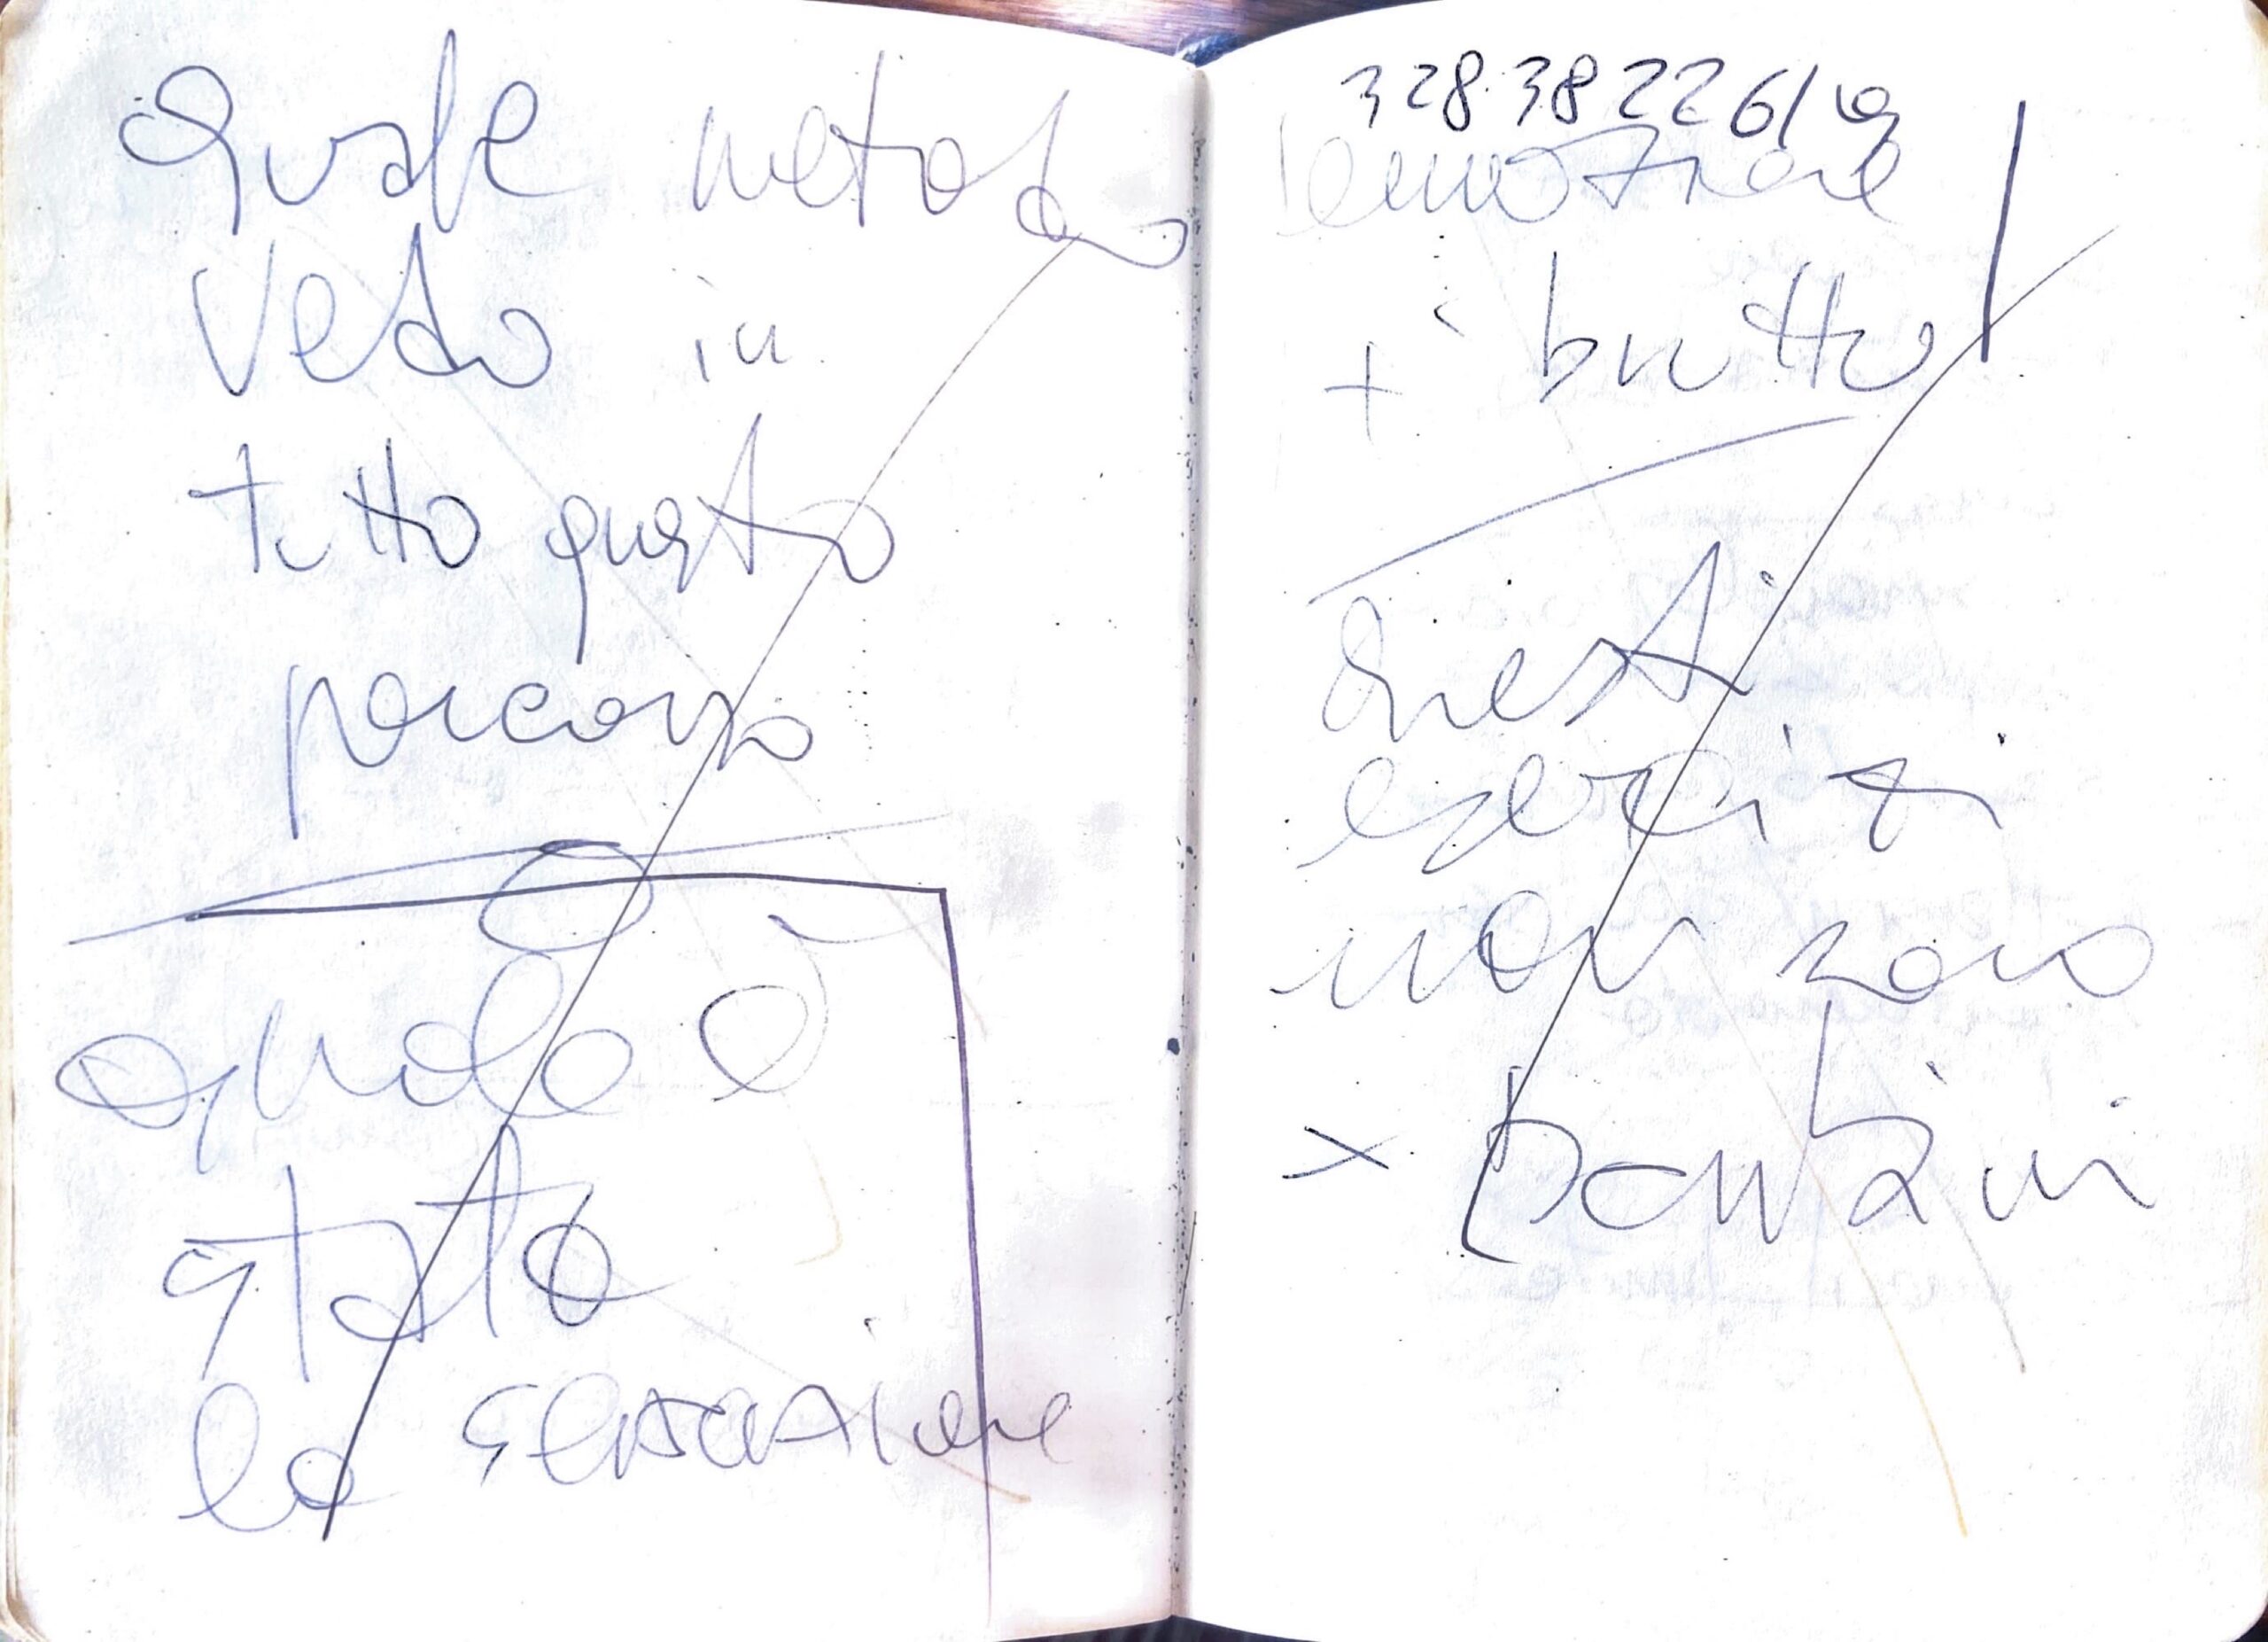 Quale metodo
vedo in
tutto questo
percorso
quale è
stata
la sensazione
328.38226/
emozione
+ brutta
Questi
esercizi
non sono
x bambini